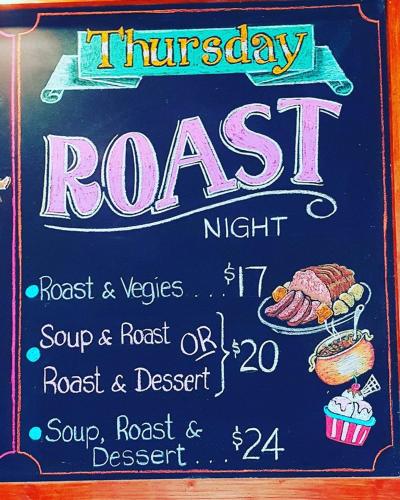 Thursday
ROAST
NIGHT
Roast & Vegies . . . $17
Soup & Roast OR
Roast & Dessert } $20
Soup, Roast &
Dessert . . . $24